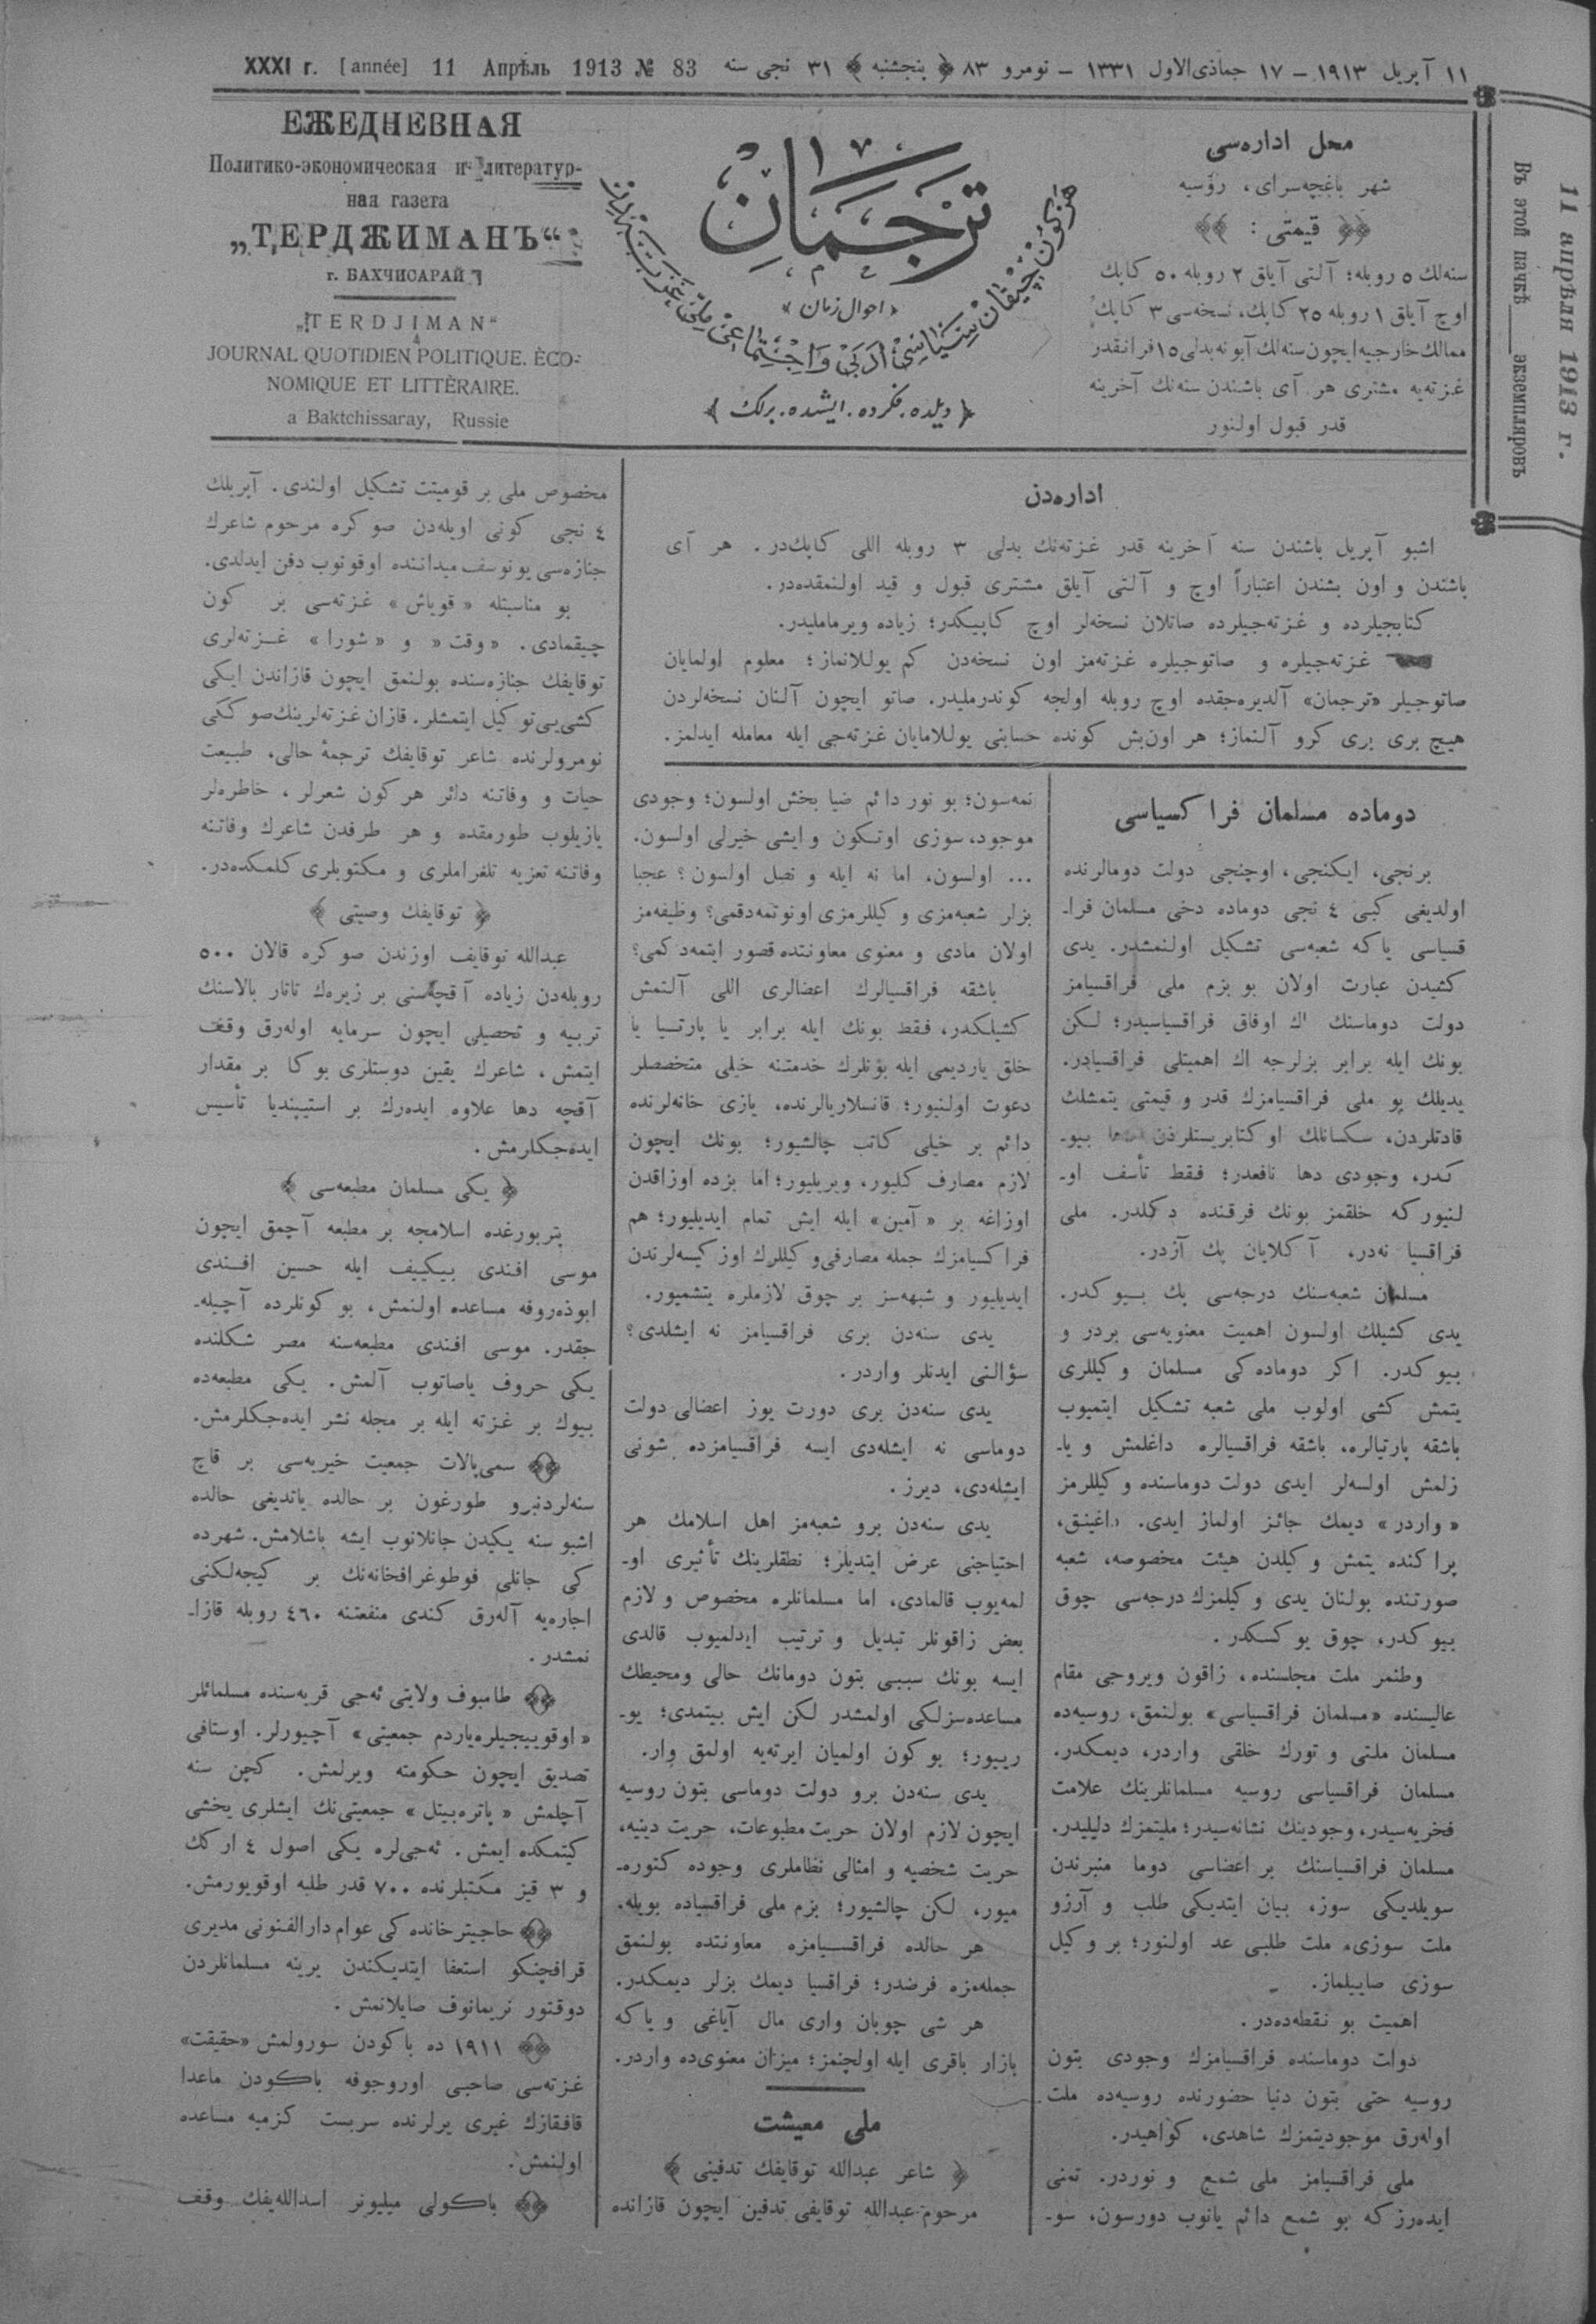 XXXI г. [année] 11 Апрѣль 1913 № 83
١١ آپریل ١٩١٣ – ١٧ جماذی‌الاول ١٣٣١ – نومرو ٨٣ ﴿ پنجشنبه ﴾ ٣١ نجی سنه
11 апрѣля 1913 г.
Въ этой пачкѣ ____ экземпляровъ
ЕЖЕДНЕВНАЯ
Политико-экономическая и литератур-
ная газета
„ТЕРДЖИМАНЪ“
г. БАХЧИСАРАЙ
„TERDJIMAN“
JOURNAL QUOTIDIEN POLITIQUE. ÈCO-
NOMIQUE ET LITTÈRAIRE.
a Baktchissaray, Russie
ترجمان
« احوال زمان »
هر كون چیقان سیاسی ادبی و اجتماعی ملی غزته‌در
﴿ دیلده. فكرده. ایشده. برلك ﴾
محل اداره‌سی
شهر باغچه‌سرای، رؤسیه
﴿﴿ قیمتی : ﴾﴾
سنه‌لك ٥ روبله؛ آلتی آیلق ٢ روبله ٥٠ كاپك
اوچ آیلق ١ روبله ٢٥ كاپك، نسخه‌سی ٣ كاپك
ممالك خارجیه‌ ایچون سنه‌لك آبونه بدلی ١٥ فرانقدر
غزته‌یه مشتری هر آی باشندن سنه‌نك آخرینه
قدر قبول اولنور
اداره‌دن
اشبو آپریل باشندن سنه آخرینه قدر غزته‌نك بدلی ٣ روبله اللی كاپك‌در. هر آی
باشندن و اون بشندن اعتباراً اوچ و آلتی آیلق مشتری قبول و قید اولنمقده‌در.
كتابجیلرده و غزته‌جیلرده صاتلان نسخه‌لر اوچ كاپیكدر؛ زیاده ویرماملیدر.
غزته‌جیلره و صاتوجیلره غزته‌مز اون نسخه‌دن كم یوللانماز؛ معلوم اولمایان
صاتوجیلر «ترجمان» آلدیره‌جقده اوچ روبله اولجه كوندرملیدر. صاتو ایچون آلنان نسخه‌لردن
هیچ بری بری كرو آلنماز؛ هر اون‌بش كونده حسابنی یوللامایان غزته‌جی ایله معامله ایدلمز.
دوماده مسلمان فراكسیاسی
برنجی، ایكنجی، اوچنجی دولت دومالرنده
اولدیغی كبی ٤ نجی دوماده دخی مسلمان فرا‌ـ
قسیاسی یاكه شعبه‌سی تشكیل اولنمشدر. یدی
كشیدن عبارت اولان بو بزم ملی فراقسیامز
دولت دوماسنك اك اوفاق فراقسیاسیدر؛ لكن
بونك ایله برابر بزلرجه اك اهمیتلی فراقسیادر.
یدیلك بو ملی فراقسیامزك قدر و قیمتی یتمشلك
قادتلردن، سكسانلك اوكتابریستلردن دها بیو‌ـ
كدر، وجودی دها نافعدر؛ فقط تأسف او‌ـ
لنیور كه خلقمز بونك فرقنده دكلدر. ملی
فراقسیا نه‌در، آكلایان پك آزدر.
مسلمان شعبه‌سنك درجه‌سی پك بیوكدر.
یدی كشیلك اولسون اهمیت معنویه‌سی بردر و
بیوكدر. اكر دوماده كی مسلمان وكیللری
یتمش كشی اولوب ملی شعبه تشكیل ایتمیوب
باشقه پارتیالره، باشقه فراقسیالره داغلمش ویا‌ـ
زلمش اولسه‌لر ایدی دولت دوماسنده وكیللرمز
«واردر» دیمك جائز اولماز ایدی. داغینق،
پراكنده یتمش وكیلدن هیئت مخصوصه، شعبه
صورتنده بولنان یدی وكیلمزك درجه‌سی چوق
بیوكدر، چوق یوكسكدر.
وطنمز ملت مجلسنده، زاقون ویروجی مقام
عالیسنده «مسلمان فراقسیاسی» بولنمق، روسیه‌ده
مسلمان ملتی و تورك خلقی واردر، دیمكدر.
مسلمان فراقسیاسی روسیه مسلمانلرینك علامت
فخریه‌سیدر، وجودینك نشانه‌سیدر؛ ملیتمزك دلیلیدر.
مسلمان فراقسیاسنك بر اعضاسی دوما منبرندن
سویلدیكی سوز، بیان ایتدیكی طلب و آرزو
ملت سوزی، ملت طلبی عد اولنور؛ بر وكیل
سوزی صاییلماز.
اهمیت بو نقطه‌ده‌در.
دولت دوماسنده فراقسیامزك وجودی بتون
روسیه حتی بتون دنیا حضورنده روسیه‌ده ملت
اوله‌رق موجودیتمزك شاهدی، كواهیدر.
ملی فراقسیامز ملی شمع و نوردر. تمنی
ایده‌رز كه بو شمع دائم یانوب دورسون، سو‌ـ
نمه‌سون؛ بو نور دائم ضیا بخش اولسون؛ وجودی
موجود، سوزی اوتكون و ایشی خیرلی اولسون.
... اولسون، اما نه ایله و نصل اولسون؟ عجبا
بزلر شعبه‌مزی وكیللرمزی اونوتمه‌دقمی؟ وظیفه‌مز
اولان مادی و معنوی معاونتده قصور ایتمه‌دكمی؟
باشقه فراقسیالرك اعضالری اللی آلتمش
كشیلكدر، فقط بونك ایله برابر یا پارتیا یا
خلق یاردیمی ایله بونلرك خدمتنه خیلی متخصصلر
دعوت اولنیور؛ قانسلاریالرنده، یازی خانه‌لرنده
دائم بر خیلی كاتب چالشیور؛ بونك ایچون
لازم مصارف كلیور، ویریلیور؛ اما بزده اوزاقدن
اوزاغه بر «آمین» ایله ایش تمام ایدیلیور؛ هم
فراكسیامزك جمله مصارفی وكیللرك اوز كیسه‌لرندن
ایدیلیور و شبهه‌سز بر چوق لازملره یتشمیور.
یدی سنه‌دن بری فراقسیامز نه ایشلدی؟
سؤالنی ایدنلر واردر.
یدی سنه‌دن بری دورت یوز اعضالی دولت
دوماسی نه ایشله‌دی ایسه فراقسیامزده شونی
ایشله‌دی، دیرز.
یدی سنه‌دن برو شعبه‌مز اهل اسلامك هر
احتیاجنی عرض ایتدیلر؛ نطقلرینك تأثیری او‌ـ
لمه‌یوب قالمادی، اما مسلمانلره مخصوص و لازم
بعض زاقونلر تبدیل و ترتیب ایدلمیوب قالدی
ایسه بونك سببی بتون دومانك حالی ومحیطك
مساعده‌سزلكی اولمشدر لكن ایش بیتمدی؛ یو‌ـ
رییور؛ بو كون اولمیان ایرته‌یه اولمق وار.
یدی سنه‌دن برو دولت دوماسی بتون روسیه
ایچون لازم اولان حریت مطبوعات، حریت دینیه،
حریت شخصیه و امثالی نظاملری وجوده كتوره‌ـ
میور، لكن چالشیور؛ بزم ملی فراقسیاده بویله.
هر حالده فراقسیامزه معاونتده بولنمق
جمله‌مزه فرضدر؛ فراقسیا دیمك بزلر دیمكدر.
هر شی چوبان واری مال آیاغی و یاكه
بازار باقری ایله اولچنمز؛ میزان معنوی‌ده واردر.
ملی معیشت
﴿ شاعر عبدالله توقایفك تدفینی ﴾
مرحوم عبدالله توقایفی تدفین ایچون قازانده
مخصوص ملی بر قومیتت تشكیل اولندی. آپریلك
٤ نجی كونی اویله‌دن صوكره مرحوم شاعرك
جنازه‌سی یونوسف میداننده اوقونوب دفن ایدلدی.
بو مناسبتله «قویاش» غزته‌سی بر كون
چیقمادی. «وقت» و «شورا» غزته‌لری
توقایفك جنازه‌سنده بولنمق ایچون قازاندن ایكی
كشی‌یی توكیل ایتمشلر. قازان غزته‌لرینك صوككی
نومرولرنده شاعر توقایفك ترجمهٔ حالی، طبیعت
حیات و وفاتنه دائر هر كون شعرلر، خاطره‌لر
یازیلوب طورمقده و هر طرفدن شاعرك وفاتنه
وفاتنه تعزیه تلغراملری و مكتوبلری كلمكده‌در.
﴿ توقایفك وصیتی ﴾
عبدالله توقایف اوزندن صوكره قالان ٥٠٠
روبله‌دن زیاده آقچه‌سنی بر زیرەك تاتار بالاسنك
تربیه و تحصیلی ایچون سرمایه اوله‌رق وقف
ایتمش، شاعرك یقین دوستلری بوكا بر مقدار
آقچه دها علاوه ایده‌رك بر استیپندیا تأسیس
ایده‌جكلرمش.
﴿ یكی مسلمان مطبعه‌سی ﴾
پتربورغده اسلامجه بر مطبعه آچمق ایچون
موسی افندی بیكییف ایله حسین افندی
ابوذه‌روفه مساعده اولنمش، بو كونلرده آچیله‌ـ
جقدر. موسی افندی مطبعه‌سنه مصر شكلنده
یكی حروف یاصاتوب آلمش. یكی مطبعه‌ده
بیوك بر غزته ایله بر مجله نشر ایده‌جكلرمش.
سمی‌پالات جمعیت خیریه‌سی بر قاچ
سنه‌لردنبرو طورغون بر حالده یاتدیغی حالده
اشبو سنه یكیدن جانلانوب ایشه باشلامش. شهرده
كی جانلی فوطوغرافخانه‌نك بر كیجه‌لكنی
اجاره‌یه آله‌رق كندی منفعتنه ٤٦٠ روبله قازا‌ـ
نمشدر.
طامبوف ولایتی ئه‌جی قریه‌سنده مسلمانلر
«اوقوییجیلره یاردم جمعیتی» آچیورلر. اوستافی
تصدیق ایچون حكومته ویرلمش. كچن سنه
آچلمش «پاتره‌بیتل» جمعیتی‌نك ایشلری یخشی
كیتمكده ایمش. ئه‌جی‌لره یكی اصول ٤ اركك
و ٣ قیز مكتبلرنده ٧٠٠ قدر طلبه اوقویورمش.
حاجیترخانده كی عوام دارالفنونی مدیری
قرافچنكو استعفا ایتدیكندن یرینه مسلمانلردن
دوقتور نریمانوف صایلانمش.
١٩١١ ده باكودن سورولمش «حقیقت»
غزته‌سی صاحبی اوروجوفه باكودن ماعدا
قافقازك غیری یرلرنده سربست كزمیه مساعده
اولنمش.
باكولی میلیونر اسدالله‌یفك وقف